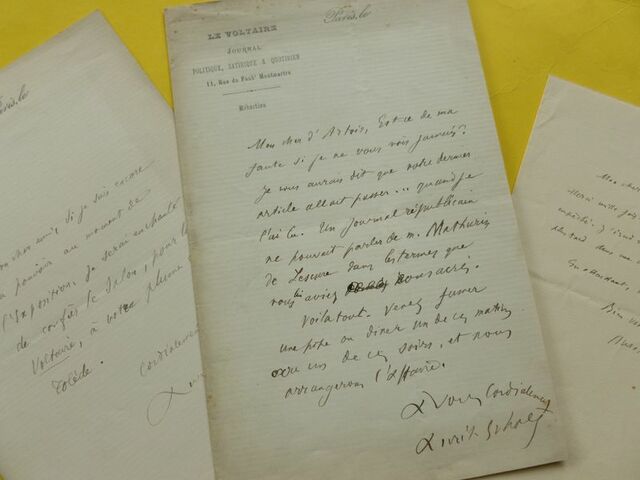 Paris, le
mon cher ami, si je suis encore
au pouvoir au moment de
l'Exposition, je serai enchanté
de confier le Salon, pour le
Voltaire, à votre plume
Cordialement
Paris, le
LE VOLTAIRE
JOURNAL
POLITIQUE, SATIRIQUE & QUOTIDIEN
11, Rue du Faubg Montmartre
Rédaction
Mon cher d'Artois, Est-ce de ma
faute si je ne vous vois jamais?
Je vous aurais dit que votre dernier
article allait passer... quand je
l'ai lu. Un journal républicain
ne pouvait parler de M. Mathurin
de Lescure dans les termes que
vous lui aviez consacrés.
Voilà tout. Venez fumer
une pipe ou dîner un de ces matins
ou un de ces soirs, et nous
arrangerons l'affaire.
A vous Cordialement
Aurélien Scholl
Mon cher
Merci mille fois
plus tard dans une
En attendant,
Bien